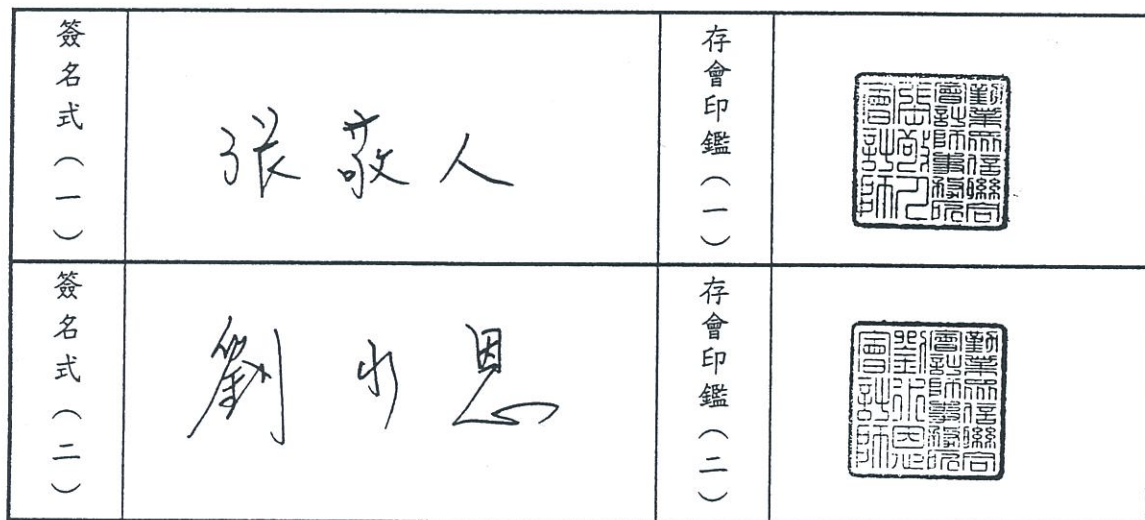 簽名式（一）
張敬人
存會印鑑（一）
勤業眾信聯合
會計師事務所
張敬人
會計師
簽名式（二）
劉水恩
存會印鑑（二）
勤業眾信聯合
會計師事務所
劉水恩
會計師